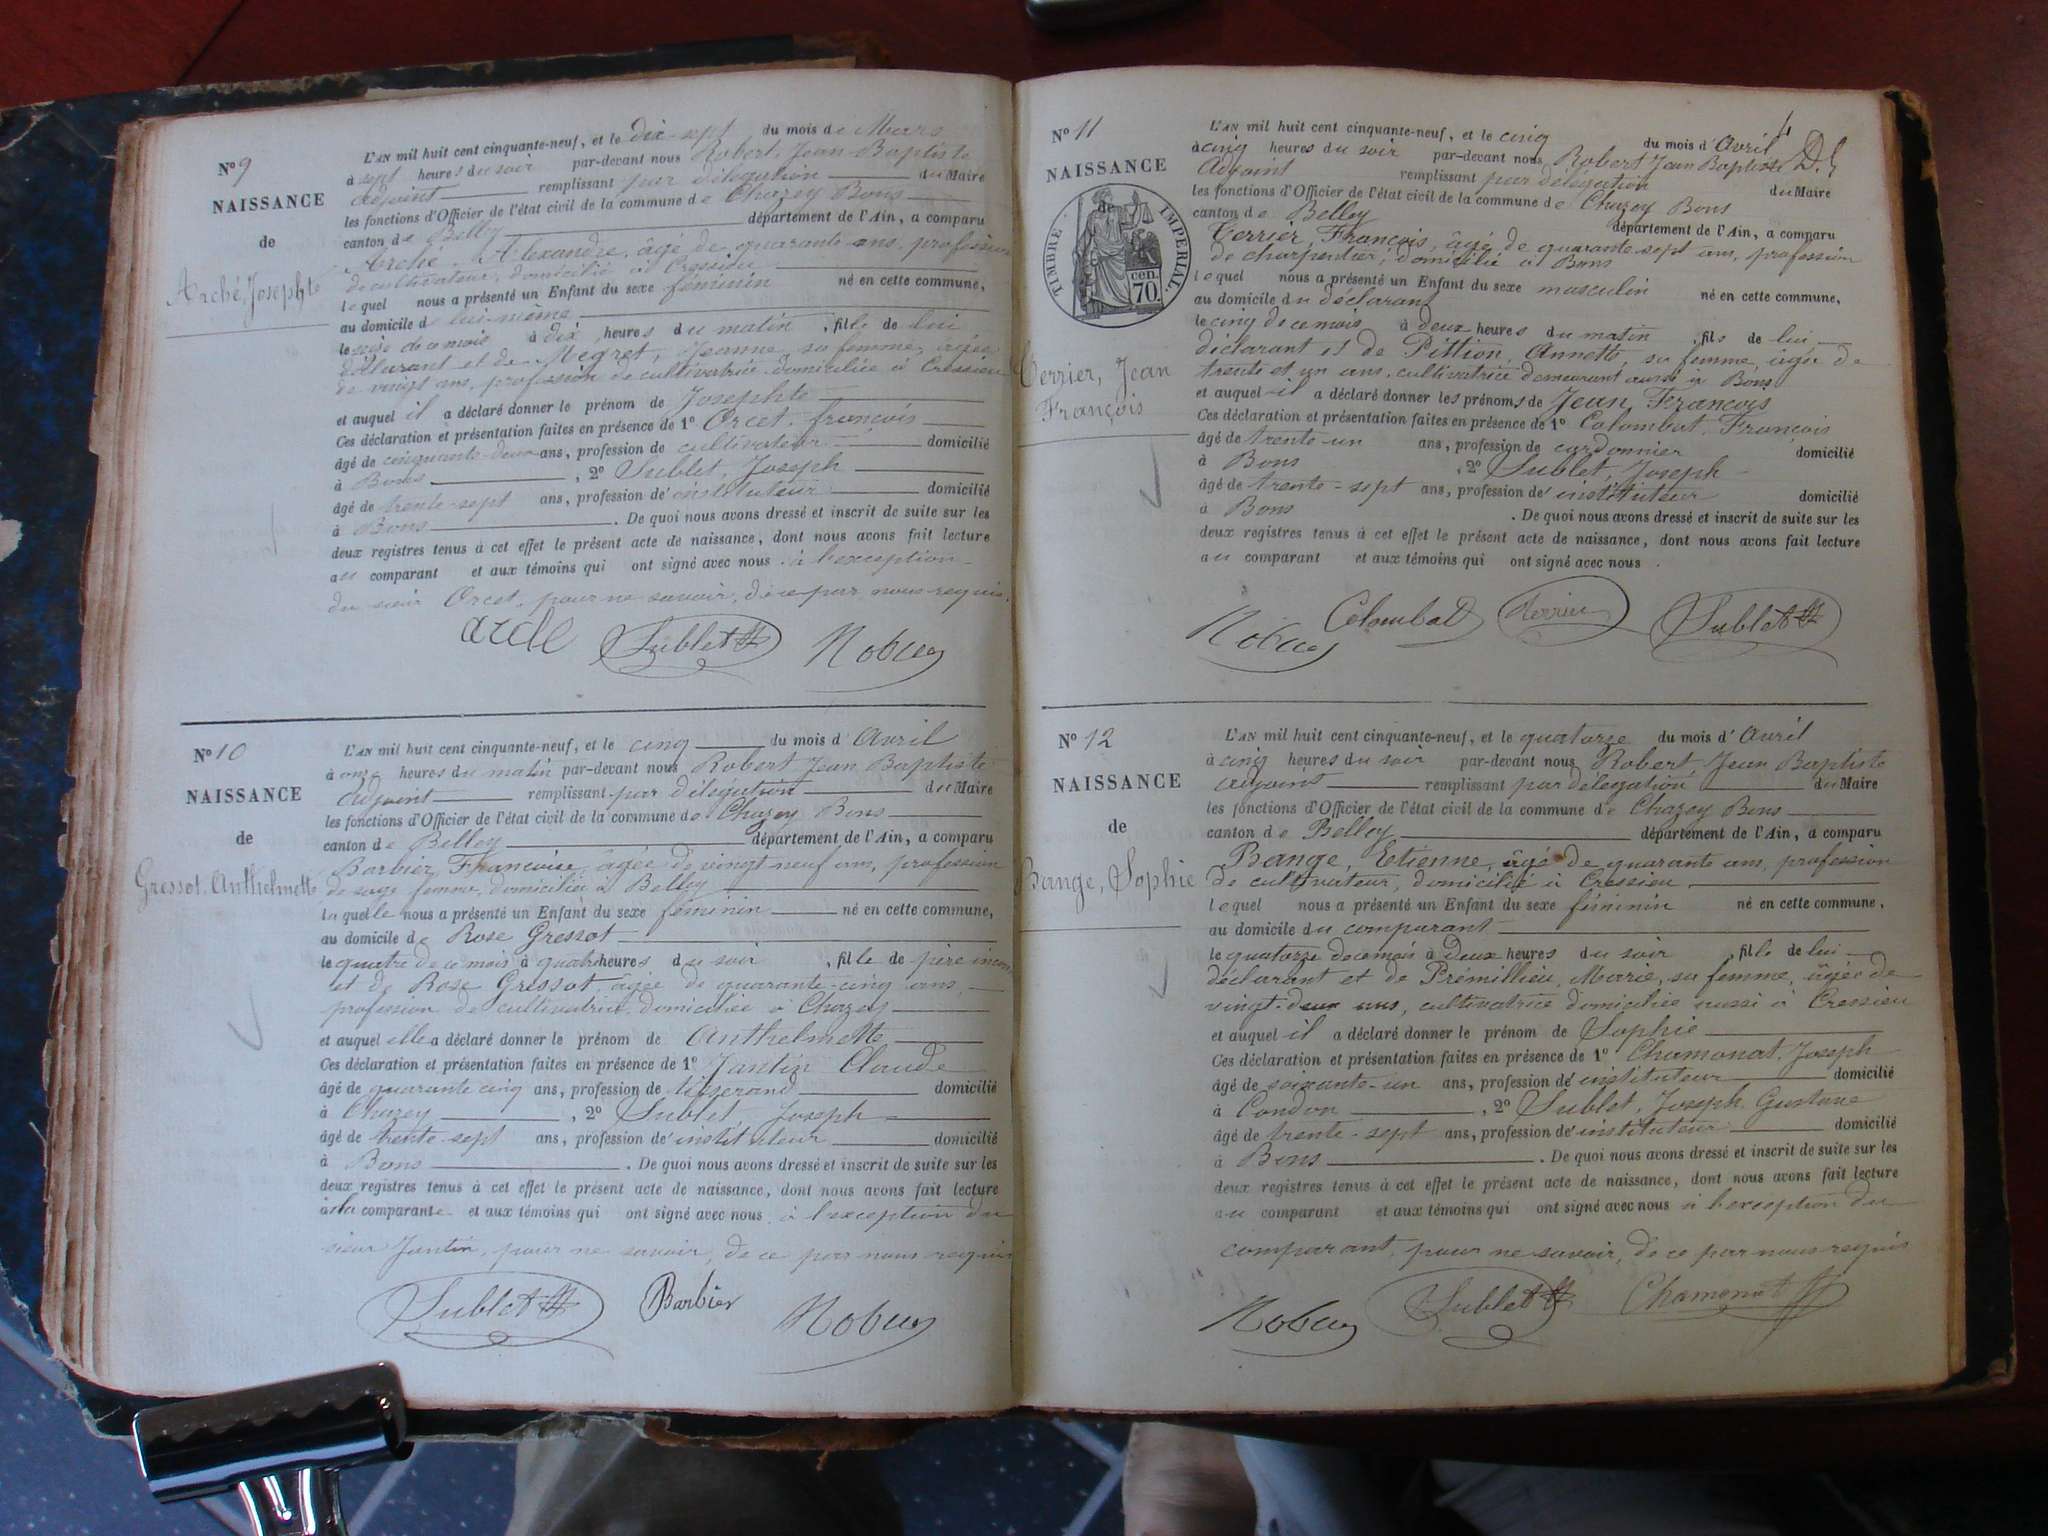 N° 9
NAISSANCE
de
Arché, Josephte
L'AN mil huit cent cinquante-neuf, et le dix-sept du mois de Mars
à sept heures du soir par-devant nous Robert, Jean Baptiste
adjoint remplissant par délégation du Maire
les fonctions d'Officier de l'état civil de la commune de Chazey Bons
canton de Belley département de l'Ain, a comparu
Arché, Alexandre, âgé de quarante ans, profession
de cultivateur, domicilié à Cressieu
lequel nous a présenté un Enfant du sexe féminin né en cette commune,
au domicile de lui-même
le seize de ce mois à dix heures du matin, fille de lui
déclarant et de Megret, Jeanne, sa femme, âgée
de vingt ans, profession de cultivatrice domiciliée à Cressieu
et auquel il a déclaré donner le prénom de Josephte
Ces déclaration et présentation faites en présence de 1° Orcet, françois
âgé de cinquante-deux ans, profession de cultivateur domicilié
à Bons, 2° Sublet, Joseph
âgé de trente-sept ans, profession d'instituteur domicilié
à Bons. De quoi nous avons dressé et inscrit de suite sur les
deux registres tenus à cet effet le présent acte de naissance, dont nous avons fait lecture
au comparant et aux témoins qui ont signé avec nous à l'exception
du sieur Orcet, pour ne savoir, de ce par nous requis.
arche Sublet Robert
N° 10
NAISSANCE
de
Gressot, Anthelmette
L'AN mil huit cent cinquante-neuf, et le cinq du mois d'Avril
à onze heures du matin par-devant nous Robert Jean Baptiste
Adjoint remplissant par délégation du Maire
les fonctions d'Officier de l'état civil de la commune de Chazey Bons
canton de Belley département de l'Ain, a comparu
Barbier, Françoise, âgée de vingt neuf ans, profession
de sage femme, domiciliée à Belley
laquelle nous a présenté un Enfant du sexe féminin né en cette commune,
au domicile de Rose Gressot
le quatre de ce mois à quatre heures du soir, fille de père inconnu
et de Rose Gressot âgée de quarante-cinq ans,
profession de cultivatrice, domiciliée à Chazey
et auquel elle a déclaré donner le prénom de Anthelmette
Ces déclaration et présentation faites en présence de 1° Jantin Claude
âgé de quarante cinq ans, profession de tisserand domicilié
à Chazey, 2° Sublet Joseph
âgé de trente-sept ans, profession d'instituteur domicilié
à Bons. De quoi nous avons dressé et inscrit de suite sur les
deux registres tenus à cet effet le présent acte de naissance, dont nous avons fait lecture
à la comparante et aux témoins qui ont signé avec nous à l'exception du
sieur Jantin, pour ne savoir, de ce par nous requis
Sublet Barbier Robert
N° 11
NAISSANCE
de
TIMBRE IMPERIAL
70 cen.
Terrier, Jean
François
L'AN mil huit cent cinquante-neuf, et le cinq du mois d'Avril
à cinq heures du soir par-devant nous Robert Jean Baptiste
Adjoint remplissant par délégation du Maire
les fonctions d'Officier de l'état civil de la commune de Chazey Bons
canton de Belley département de l'Ain, a comparu
Terrier, François, âgé de quarante-sept ans, profession
de charpentier, domicilié à Bons
lequel nous a présenté un Enfant du sexe masculin né en cette commune,
au domicile du déclarant
le cinq de ce mois à deux heures du matin, fils de lui
déclarant et de Pittion, Annette, sa femme, âgée de
trente et un ans, cultivatrice demeurant aussi à Bons
et auquel il a déclaré donner les prénoms de Jean François
Ces déclaration et présentation faites en présence de 1° Colombat, François
âgé de trente-un ans, profession de cordonnier domicilié
à Bons, 2° Sublet, Joseph
âgé de trente-sept ans, profession d'instituteur domicilié
à Bons. De quoi nous avons dressé et inscrit de suite sur les
deux registres tenus à cet effet le présent acte de naissance, dont nous avons fait lecture
au comparant et aux témoins qui ont signé avec nous.
Robert Colombat Terrier Sublet
N° 12
NAISSANCE
de
Bange, Sophie
L'AN mil huit cent cinquante-neuf, et le quatorze du mois d'Avril
à cinq heures du soir par-devant nous Robert Jean Baptiste
adjoint remplissant par délégation du Maire
les fonctions d'Officier de l'état civil de la commune de Chazey Bons
canton de Belley département de l'Ain, a comparu
Bange, Etienne, âgé de quarante ans, profession
de cultivateur, domicilié à Cressieu
lequel nous a présenté un Enfant du sexe féminin né en cette commune,
au domicile du comparant
le quatorze de ce mois à deux heures du soir, fille de lui
déclarant et de Prémillieu, Marie, sa femme, âgée de
vingt-deux ans, cultivatrice domiciliée aussi à Cressieu
et auquel il a déclaré donner le prénom de Sophie
Ces déclaration et présentation faites en présence de 1° Chamonat, Joseph
âgé de soixante-un ans, profession d'instituteur domicilié
à Condon, 2° Sublet, Joseph Gustave
âgé de trente-sept ans, profession d'instituteur domicilié
à Bons. De quoi nous avons dressé et inscrit de suite sur les
deux registres tenus à cet effet le présent acte de naissance, dont nous avons fait lecture
au comparant et aux témoins qui ont signé avec nous à l'exception du
comparant, pour ne savoir, de ce par nous requis
Robert Sublet Chamonat